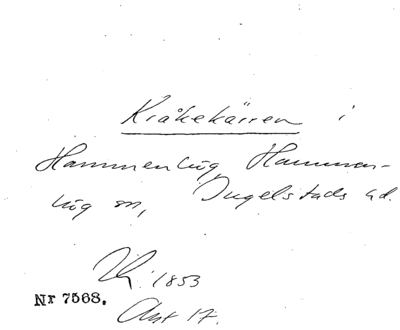 Kråkekärren i
Hammenhög Hammen-
hög sn, Ingelstads hd.
1853
Nr 7568.
Akt 17.